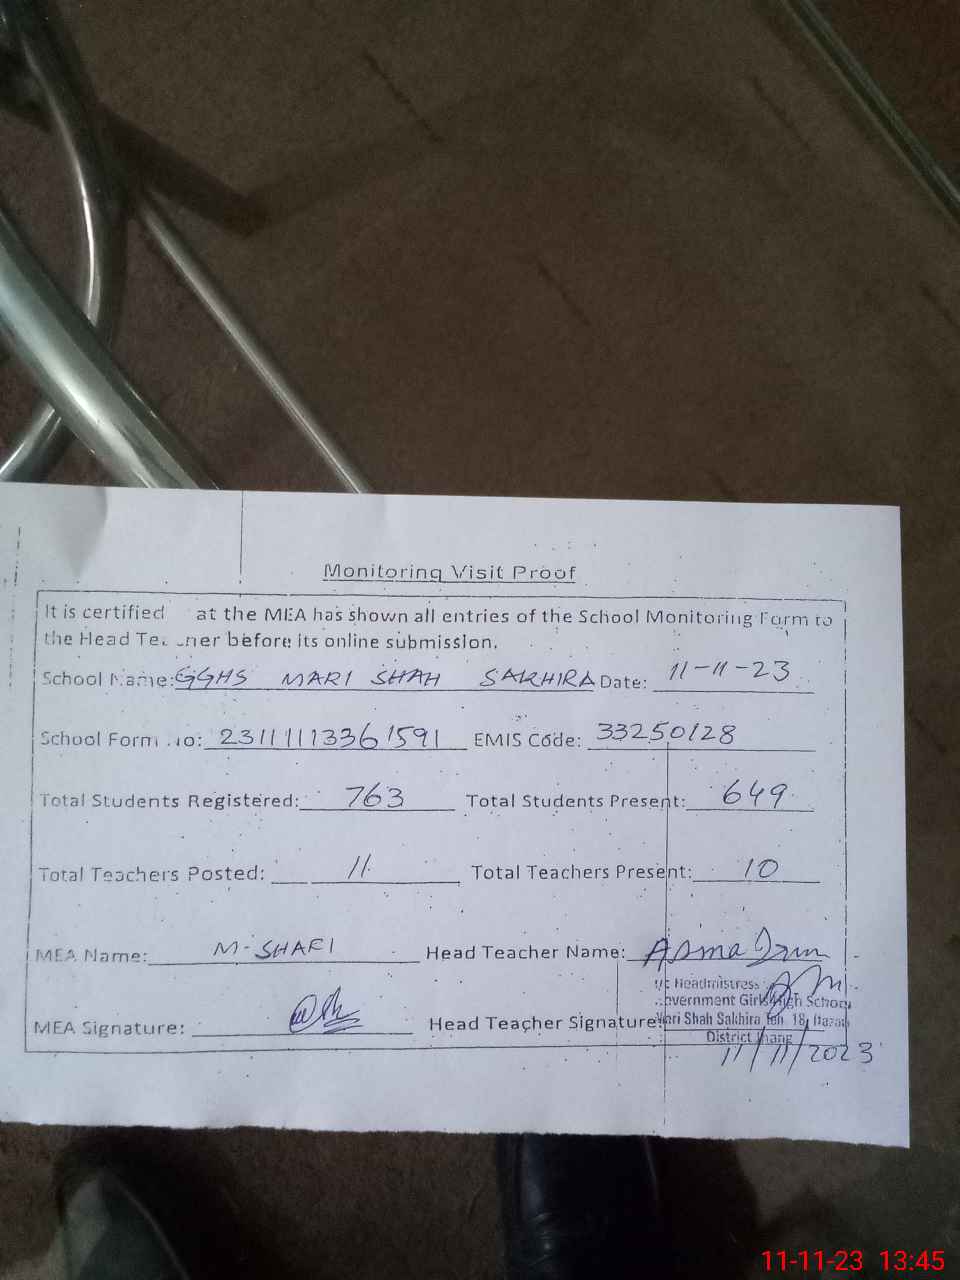 Monitoring Visit Proof
It is certified at the MEA has shown all entries of the School Monitoring Form to
the Head before its online submission.
School Name: GGHS MARI SHAH SAKHIRA Date: 11-11-23
School Form No: 23111113361591 EMIS Code: 33250128
Total Students Registered: 763 Total Students Present: 649
Total Teachers Posted: 11 Total Teachers Present: 10
MEA Name: M-SHAFI Head Teacher Name: Asma
I/c Headmistress
Government Girls High School
Mari Shah Sakhira Teh. 18, Hazari
MEA Signature: Head Teacher Signature:
District Jhang
11/11/2023
11-11-23 13:45